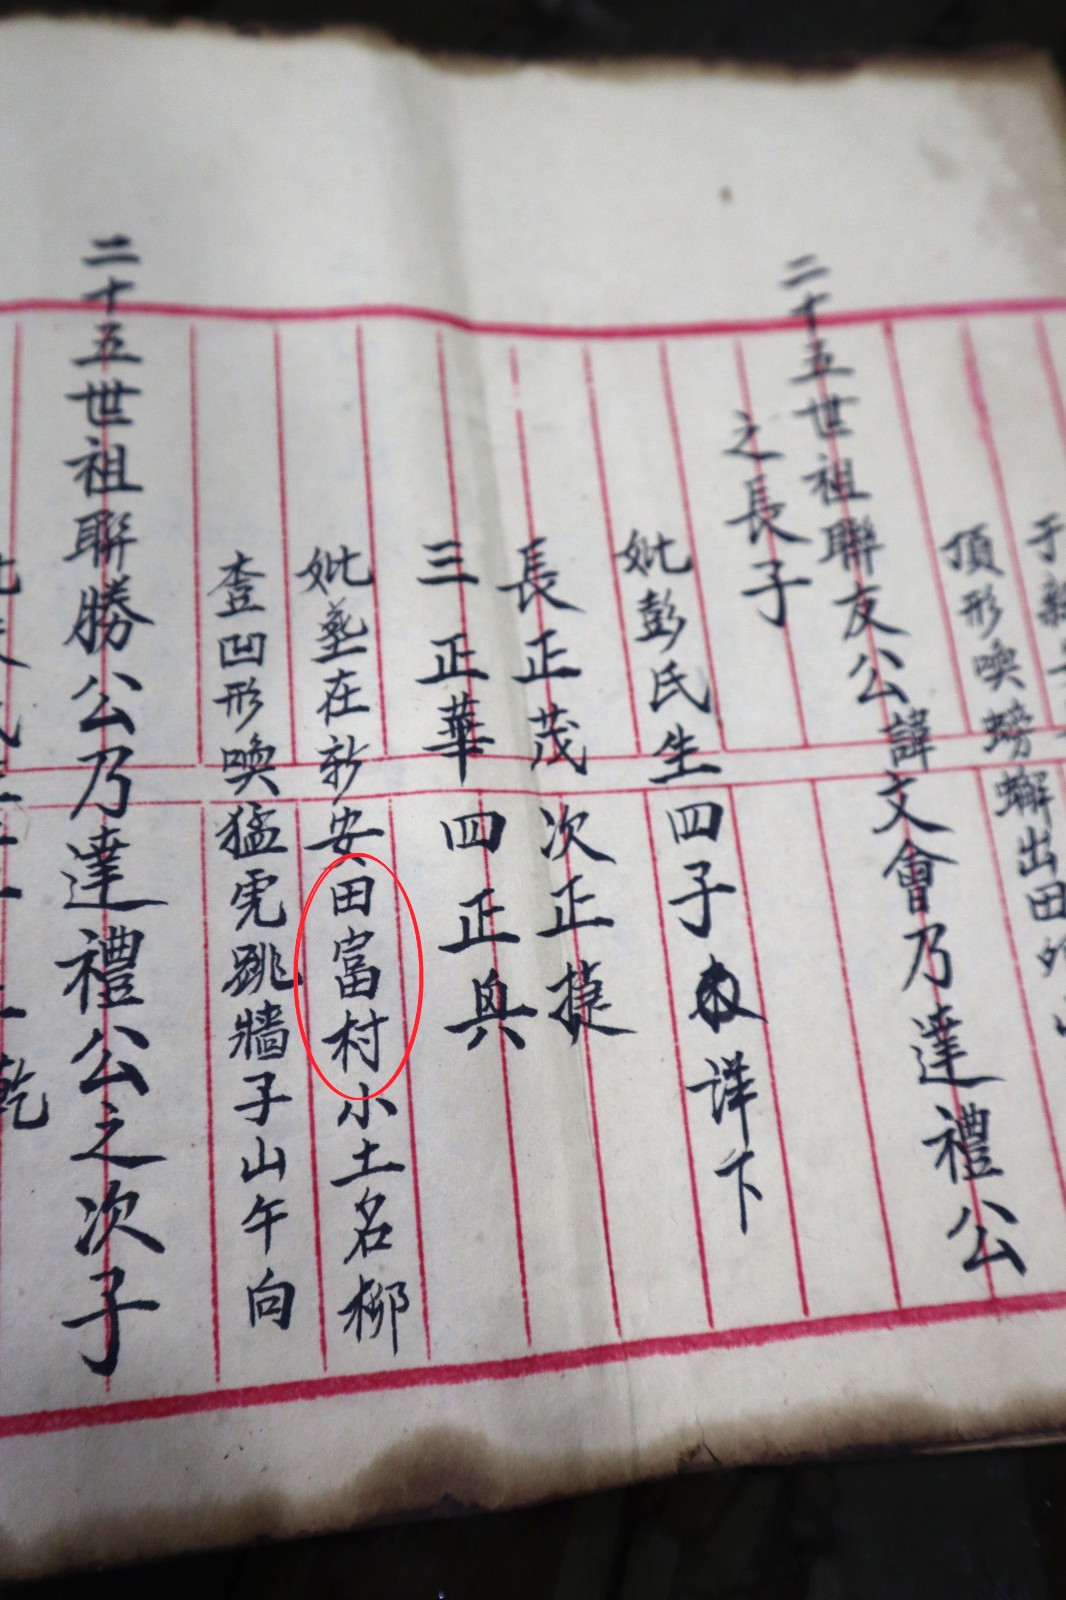 頂形喚螃蠏出田
二十五世祖聯友公諱文會乃達禮公
之長子
妣彭氏生四子詳下
長正茂 次正揵
三正華 四正興
妣葬在新安田富村小土名柳
査凹形喚猛虎跳牆子山午向
二十五世祖聯勝公乃達禮公之次子
乾